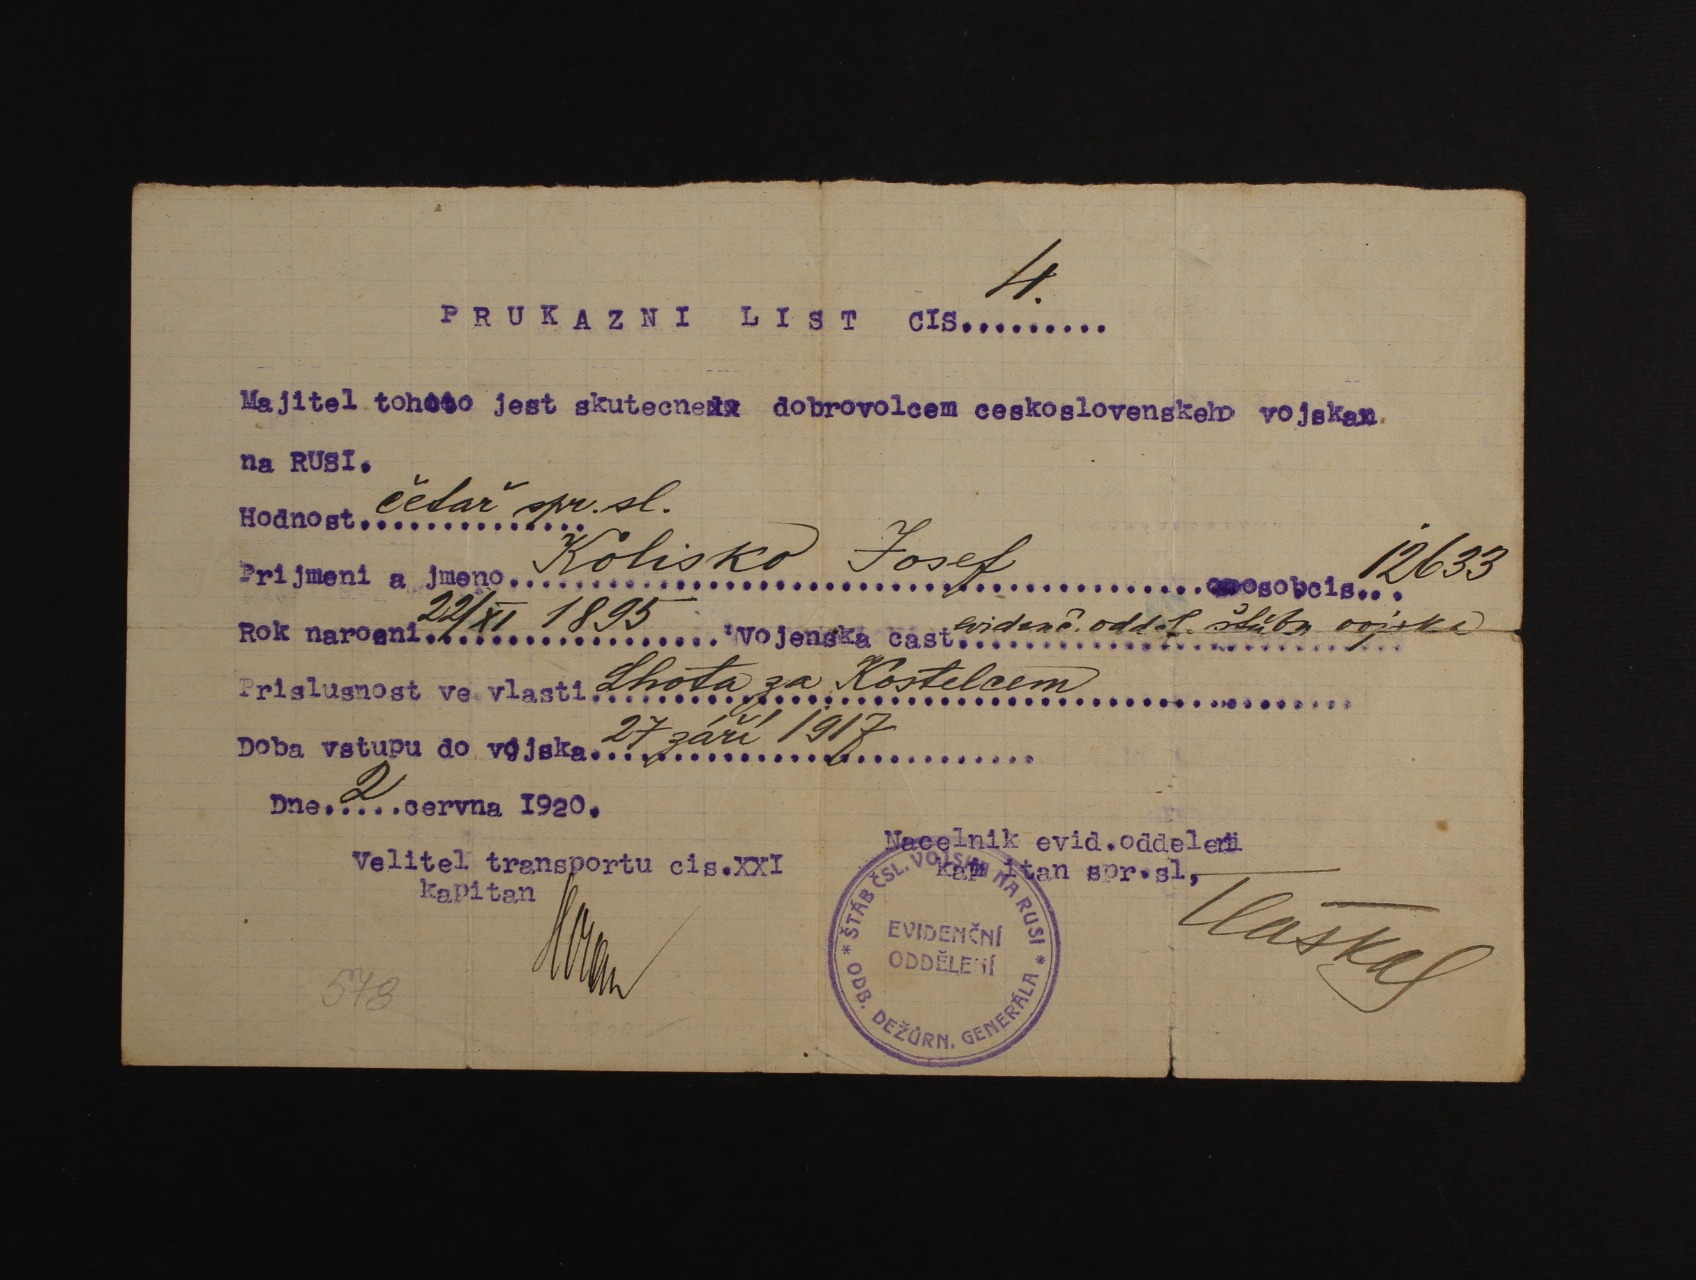 PRUKAZNI LIST CIS......... 4.
Majitel tohoto jest skutecne dobrovolcem ceskoslovenskeho vojska
na RUSI.
Hodnost............... četař spr. sl.
Prijmeni a jmeno........ Kolisko Josef ........osobcis.... 12633
Rok naroeni........ 22/XI 1895 ........Vojenska cast........ evidenč. odděl. štábu vojska
Prislusnost ve vlasti........ Lhota za Kostelcem
Doba vstupu do vojska........ 27 září 1917
Dne..2...cervna 1920.
Nacelnik evid.oddeleni
Velitel transportu cis.XXI
kapitan spr.sl,
kapitan
* ŠTÁB ČSL. VOJSKA NA RUSI * ODB. DEŽŮRN. GENERÁLA
EVIDENČNÍ
ODDĚLENÍ
578